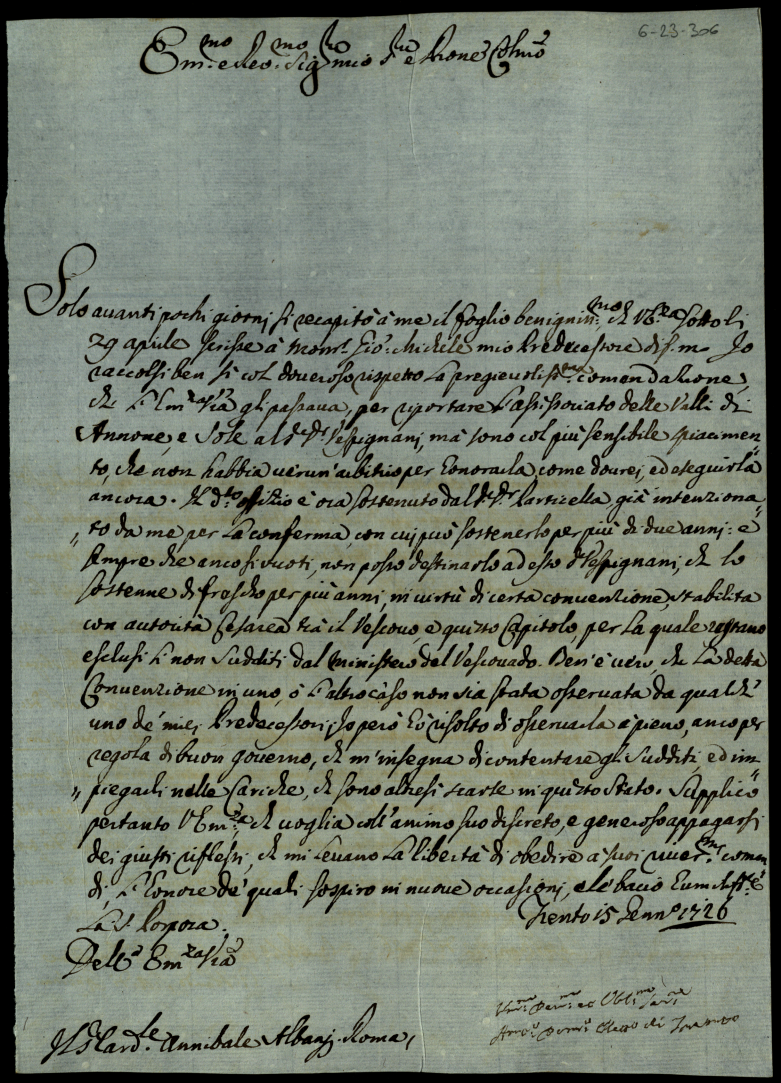 6-23-306
Em.mo e Reo.mo Sig.re mio Sr. e Prone Colmo
Solo auanti pochi giorni si recapitò à me il foglio benignis.mo che VE.za sotto li
29 aprile scrisse à Mons.r Gio: Michele mio Predecessore di f. m. Io
raccolsi ben sì col doueroso rispetto la pregieuoliss.ma comendatione,
che l'Em.za V.ra gli passaua, per riportare l'assessoriato delle Valli di
Annone, e Sole al Dr. Vespignani, mà sono col più sensibile spiacimen-
to, che non habbia uerun'arbitrio per honorarla come dourei, ed eseguirla
ancora. Il d.to offizio è ora sostenuto dal Dr. Particella già intenziona-
to da me per la conferma, con cui può sostenerlo per più di due anni: e
sempre che anco si uuoti, non posso destinarlo ad esso Vespignani, che lo
sostenne di fresco per più anni, in uirtù di certa conuenzione, stabilita
con autorità Cesarea trà il Vescouo, e questo Capitolo, per la quale restano
esclusi li non Sudditi dal ministero del Vescouado. Ben'è uero, che la detta
Conuenzione in uno, ò l'altro caso non sia stata osseruata da qualch'
uno de' miei Predecessori; Io però hò risolto di osseruarla à pieno, anco per
regola di buon gouerno, che m'insegna di contentare gli Sudditi, ed im-
piegarli nelle Cariche, che sono altresì scarse in questo Stato. Supplico
pertanto VEm.za che uoglia coll'animo suo discreto, e generoso appagarsi
dei giusti riflessi, che mi leuano la libertà di obedire à suoi riuer.mi coman-
di, l'honore de' quali sospiro in nuoue occasioni, e le bacio humiliss.te
la S. Porpora.
Trento 15 Genn.o 1726
Dell' Em.za V.ra
S.r Card.le Annibale Albani. Roma
Hum.mo Deu.mo ed Obl.mo Ser.re
Eletto di Trento